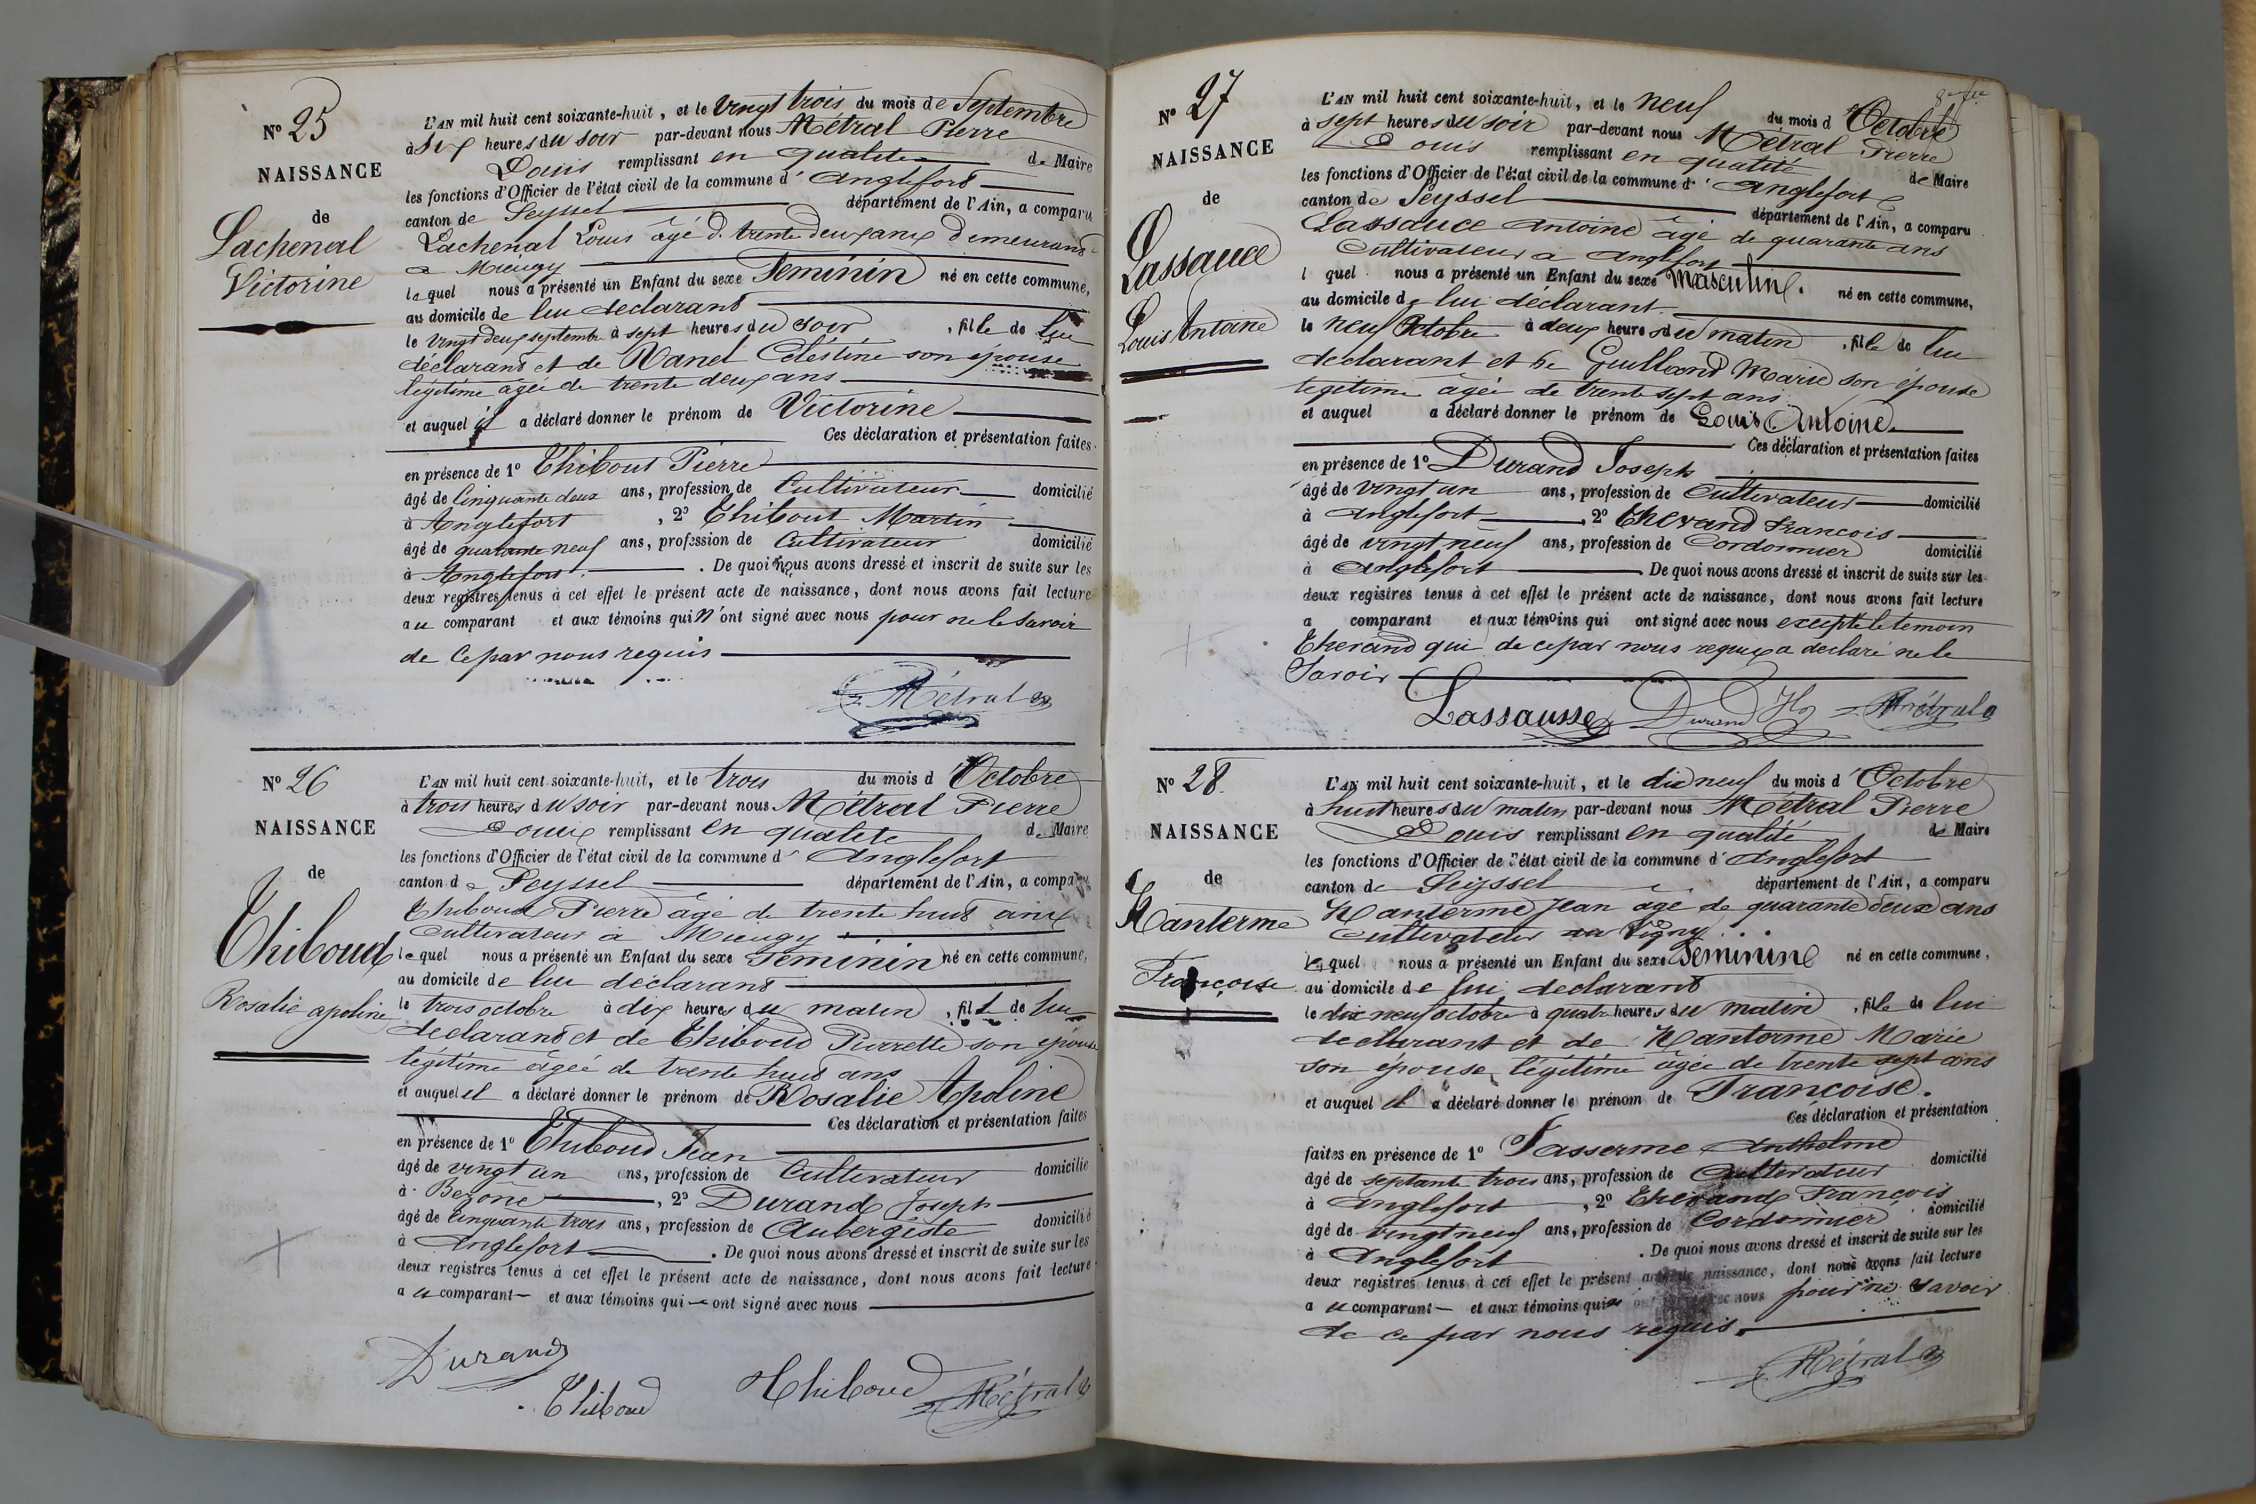 N° 25
NAISSANCE
de
Lachenal
Victorine
L'AN mil huit cent soixante-huit, et le vingt trois du mois de Septembre
à six heures du soir par-devant nous Métral Pierre
Louis remplissant en qualité de Maire
les fonctions d'Officier de l'état civil de la commune d' Anglefort
canton de Seyssel département de l'Ain, a comparu
Lachenal Louis âgé d. trente deux ans demeurant
à Mieugy
lequel nous a présenté un Enfant du sexe Feminin né en cette commune,
au domicile de lui declarant
le vingt deux septembre à sept heures du soir, fille de lui
déclarant et de Ranel Célestine son épouse
légitime âgée de trente deux ans
et auquel il a déclaré donner le prénom de Victorine
Ces déclaration et présentation faites
en présence de 1° Thibout Pierre
âgé de Cinquante deux ans, profession de Cultivateur domicilié
à Anglefort, 2° Thibout Martin
âgé de quarante neuf ans, profession de Cultivateur domicilié
à Anglefort. De quoi nous avons dressé et inscrit de suite sur les
deux registres tenus à cet effet le présent acte de naissance, dont nous avons fait lecture
au comparant et aux témoins qui n'ont signé avec nous pour ne le savoir
de ce par nous requis
Métral
N° 26
NAISSANCE
de
Thiboud
Rosalie apoline
L'AN mil huit cent soixante-huit, et le trois du mois d'Octobre
à trois heures du soir par-devant nous Métral Pierre
Louis remplissant en qualité de Maire
les fonctions d'Officier de l'état civil de la commune d' Anglefort
canton de Seyssel département de l'Ain, a comparu
Thiboud Pierre âgé de trente huit ans
Cultivateur à Mieugy
lequel nous a présenté un Enfant du sexe Feminin né en cette commune,
au domicile de lui déclarant
le trois octobre à dix heures du matin, fill de lui
declarant et de Thiboud Pierrette son épouse
légitime âgée de trente huit ans
et auquel il a déclaré donner le prénom de Rosalie Apoline
Ces déclaration et présentation faites
en présence de 1° Thiboud Jean
âgé de vingt un ans, profession de Cultivateur domicilié
à Bezone, 2° Durand Joseph
âgé de Cinquante trois ans, profession de Aubergiste domicilié
à Anglefort. De quoi nous avons dressé et inscrit de suite sur les
deux registres tenus à cet effet le présent acte de naissance, dont nous avons fait lecture
au comparant et aux témoins qui ont signé avec nous
Durand
Thiboud Thiboud Métral
N° 27
NAISSANCE
de
Lassauce
Louis Antoine
L'AN mil huit cent soixante-huit, et le neuf du mois d'Octobre
à sept heures du soir par-devant nous Métral Pierre
Louis remplissant en qualité de Maire
les fonctions d'Officier de l'état civil de la commune d' Anglefort
canton de Seyssel département de l'Ain, a comparu
Lassauce Antoine âgé de quarante ans
Cultivateur à Anglefort
l quel nous a présenté un Enfant du sexe Masculin. né en cette commune,
au domicile de lui déclarant
le neuf Octobre à deux heures du matin, fils de lui
declarant et de Guilland Marie son épouse
legitime agée de trente sept ans
et auquel a déclaré donner le prénom de Louis Antoine.
Ces déclaration et présentation faites
en présence de 1° Durand Joseph
âgé de vingt un ans, profession de Cultivateur domicilié
à Anglefort, 2° Therand Francois
âgé de vingt neuf ans, profession de Cordonnier domicilié
à Anglefort. De quoi nous avons dressé et inscrit de suite sur les
deux registres tenus à cet effet le présent acte de naissance, dont nous avons fait lecture
a comparant et aux témoins qui ont signé avec nous excepté le temoin
Therand qui de ce par nous requis a déclaré ne le
Savoir
Lassausse Durand Métral
N° 28
NAISSANCE
de
Nanterme
Françoise
L'AN mil huit cent soixante-huit, et le dix neuf du mois d'Octobre
à huit heures du matin par-devant nous Métral Pierre
Louis remplissant en qualité de Maire
les fonctions d'Officier de l'état civil de la commune d' Anglefort
canton de Seyssel département de l'Ain, a comparu
Nanterme Jean âgé de quarante deux ans
Cultivateur
lequel nous a présenté un Enfant du sexe Feminine né en cette commune,
au domicile de lui declarant
le dix neuf octobre à quatre heures du matin, fille de lui
declarant et de Nanterme Marie
son épouse légitime âgée de trente sept ans
et auquel il a déclaré donner le prénom de Francoise.
Ces déclaration et présentation
faites en présence de 1° Passerme Anthelme
âgé de septante trois ans, profession de Cultivateur domicilié
à Anglefort, 2° Therand François
âgé de vingt neuf ans, profession de Cordonnier domicilié
à Anglefort. De quoi nous avons dressé et inscrit de suite sur les
deux registres tenus à cet effet le présent acte de naissance, dont nous avons fait lecture
au comparant et aux témoins qui ont signé avec nous pour ne savoir
de ce par nous requis.
Métral